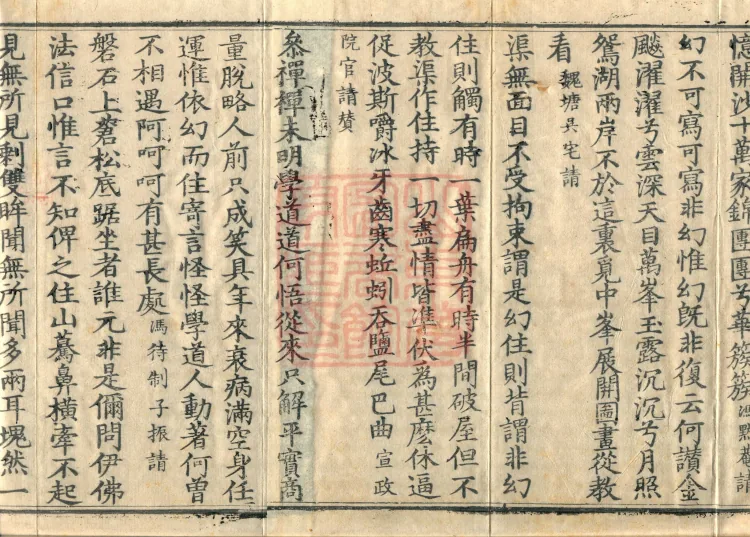 憶開沙十萬家錦團團兮華簇簇 馮點菴請
幻不可寫可寫非幻惟幻旣非復云何讃金
飈濯濯兮雲深天目萬峯玉露沉沉兮月照
鴛湖兩岸不於這裏覓中峯展開圖畫從教
看 魏塘吳宅請
渠無面目不受拘束謂是幻住則背謂非幻
住則觸有時一葉扁舟有時半間破屋但不
教渠作住持一切盡情皆準伏為甚麼休逼
促波斯嚼冰牙齒寒蚯蚓吞鹽尾巴曲 宣政
院官請賛
叅禪禪未明學道道何悟從來只解平實商
量脫略人前只成笑具年來衰病滿空身任
運惟依幻而住寄言怪怪學道人動著何曾
不相遇阿呵呵有甚長處 馮待制子振請
磐石上蒼松底踞坐者誰元非是儞問伊佛
法信口惟言不知俾之住山驀鼻橫牽不起
見無所見剩雙眸聞無所聞多兩耳塊然一